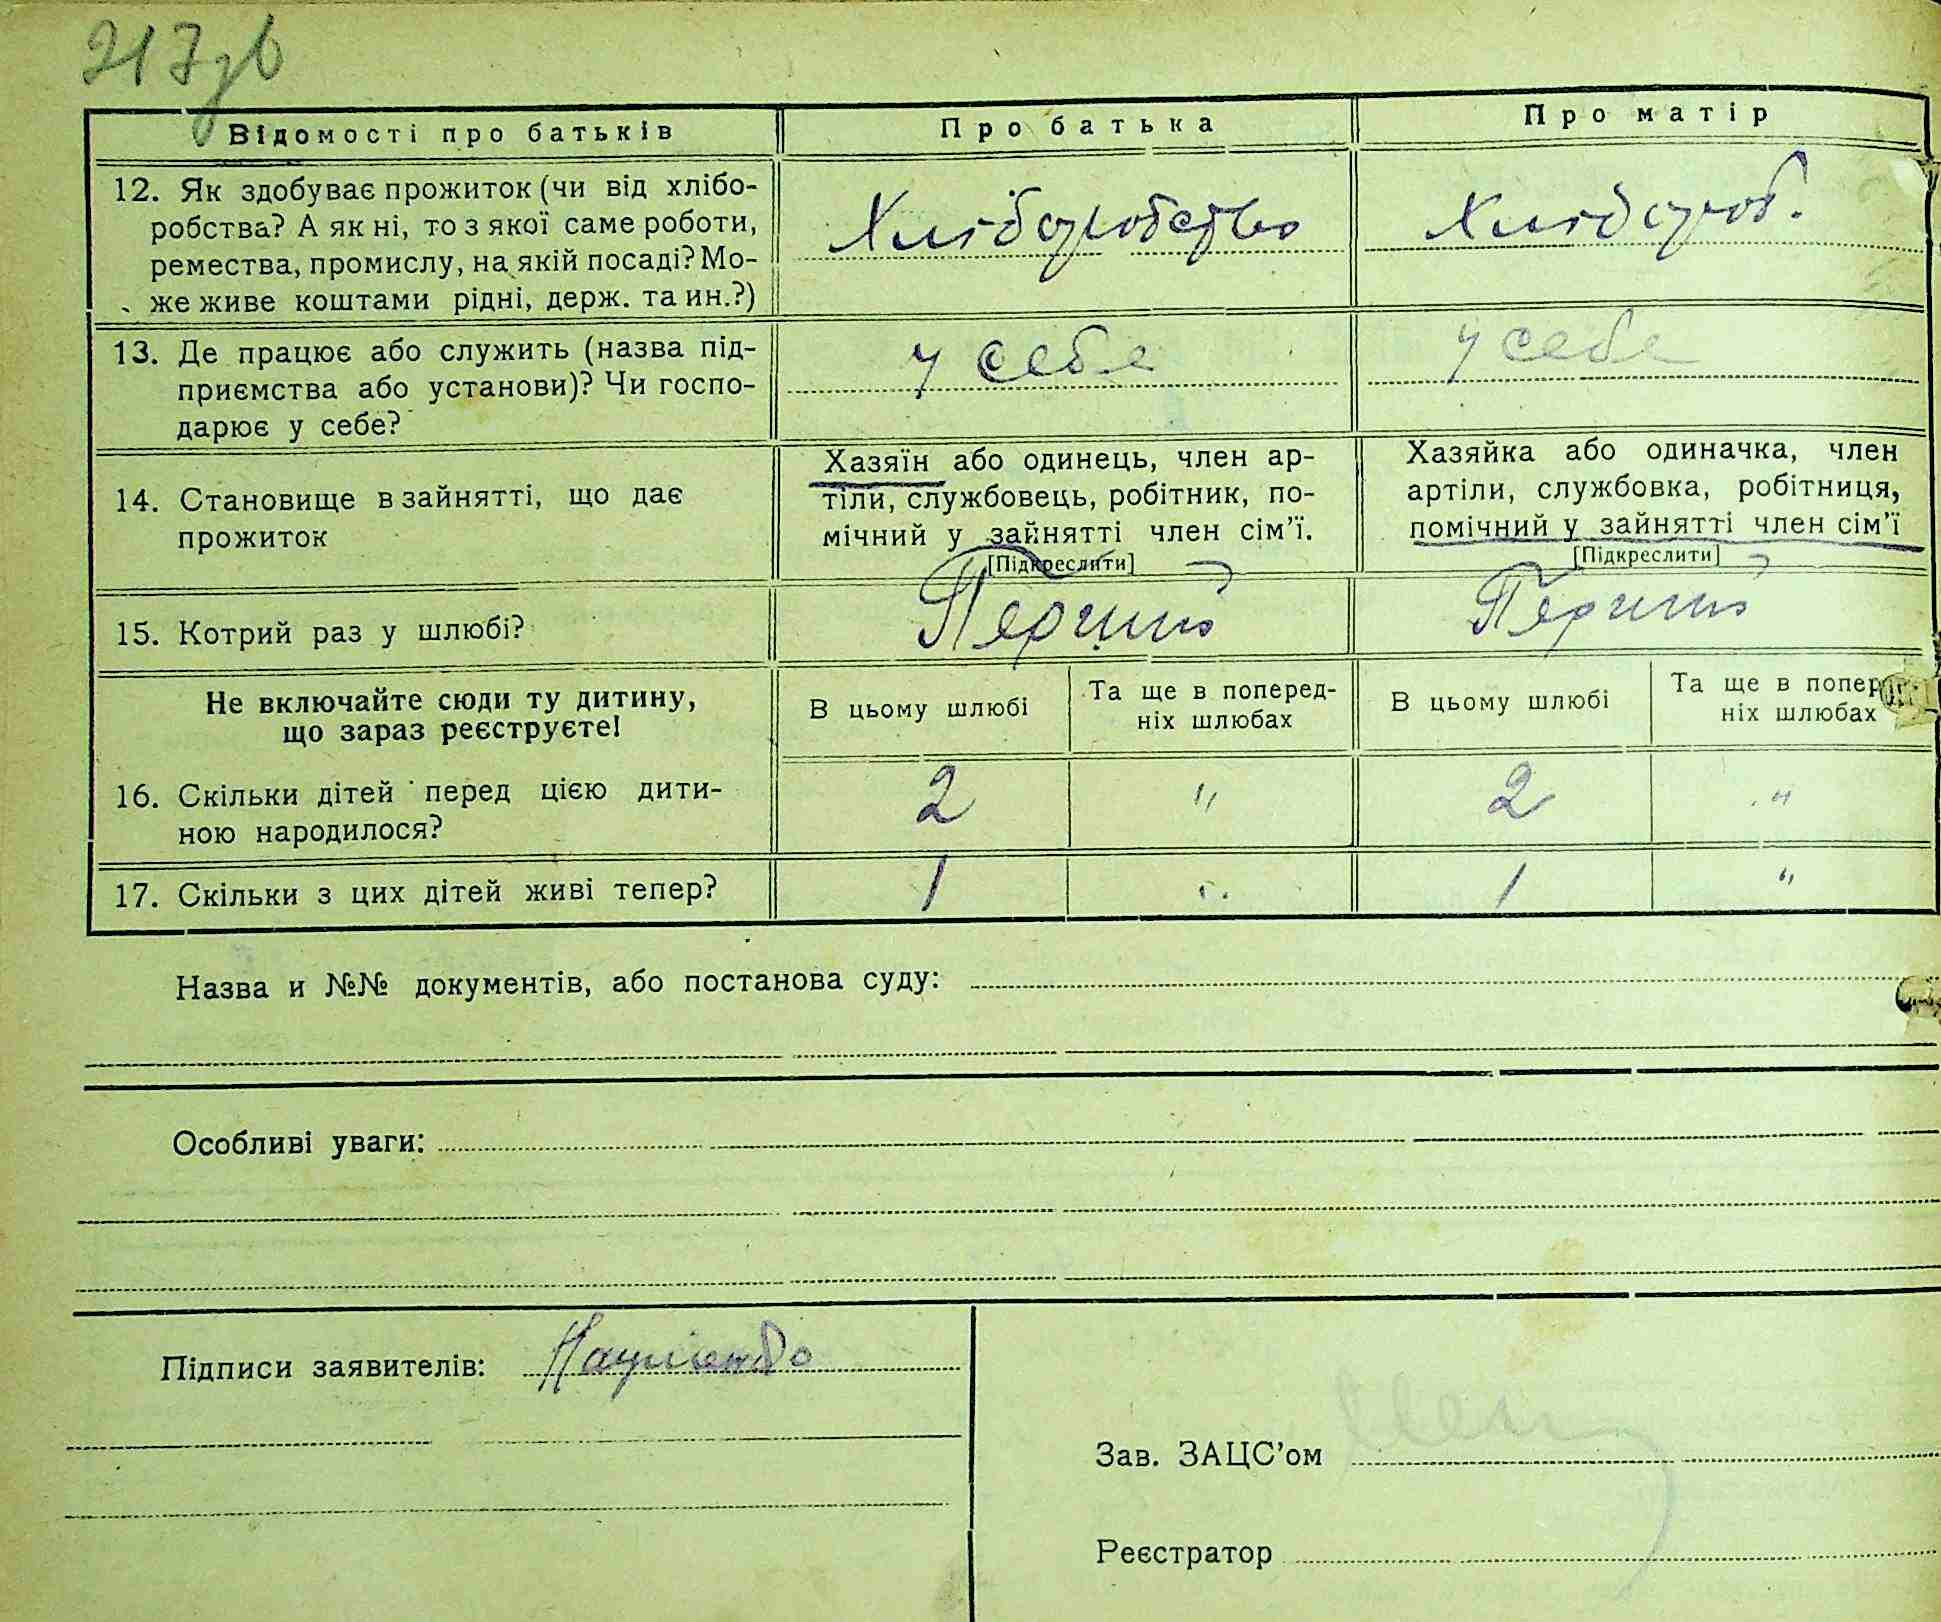 217зв
Відомості про батьків Про батька Про матір
12. Як здобуває прожиток (чи від хлібо-
робства? А як ні, то з якої саме роботи,
ремества, промислу, на якій посаді? Мо-
же живе коштами рідні, держ. та ин.?)
Хліборобство Хлібороб.
13. Де працює або служить (назва під-
приємства або установи)? Чи госпо-
дарює у себе?
у себе у себе
14. Становище в зайнятті, що дає
прожиток
Хазяїн або одинець, член ар-
тіли, службовець, робітник, по-
мічний у зайнятті член сім'ї.
[Підкреслити]
Хазяйка або одиначка, член
артіли, службовка, робітниця,
помічний у зайнятті член сім'ї
[Підкреслити]
15. Котрий раз у шлюбі? Перший Перший
Не включайте сюди ту дитину,
що зараз реєструєте!
В цьому шлюбі
Та ще в поперед-
ніх шлюбах
В цьому шлюбі
Та ще в попер
ніх шлюбах
16. Скільки дітей перед цією дити-
ною народилося?
2 " 2 "
17. Скільки з цих дітей живі тепер? 1 " 1 "
Назва и №№ документів, або постанова суду:
Особливі уваги:
Підписи заявителів: Науменко
Зав. ЗАЦС'ом
Реєстратор